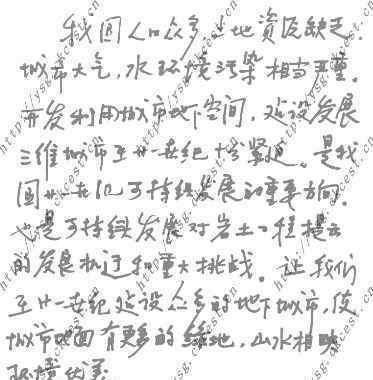 我国人口众多,土地资源缺乏,
城市大气,水环境污染相当严重。
开发利用城市地下空间,建设发展
三维城市至廿一世纪十分紧迫。是我
国廿一世纪可持续发展的重要方向,
也是可持续发展对岩土工程提出
的发展机遇和重大挑战。让我们
至廿一世纪建设众多的地下城市,使
城市地面有更多的绿地,山水相映
环境优美